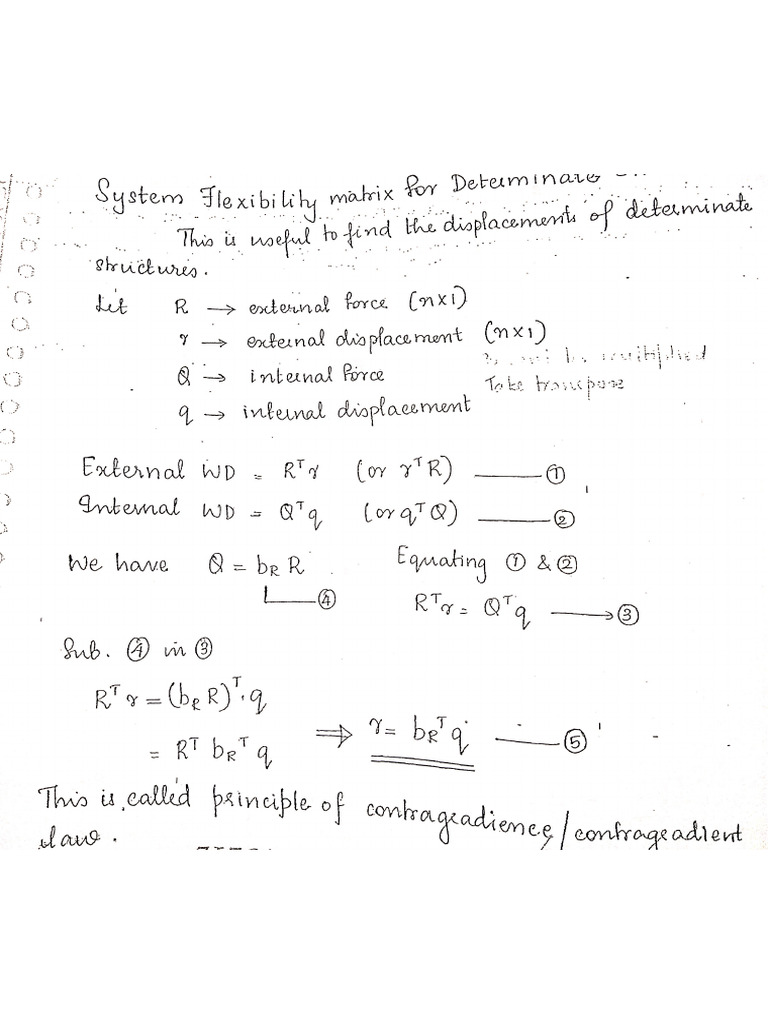 System Flexibility matrix for Determinate
This is useful to find the displacements of determinate
structures.
Let R → external force (n×1)
r → external displacement (n×1)
Q → internal force
Take transpose
q → internal displacement
External WD = Rᵀr (or rᵀR) ——— ①
Internal WD = Qᵀq (or qᵀQ) ——— ②
We have Q = b_R R Equating ① & ②
——— ④
Rᵀr = Qᵀq ——→ ③
Sub. ④ in ③
Rᵀr = (b_R R)ᵀ. q
= Rᵀ b_Rᵀ q ⟹ r = b_Rᵀ q ——— ⑤
This is called principle of contragradience/contragradient
law.